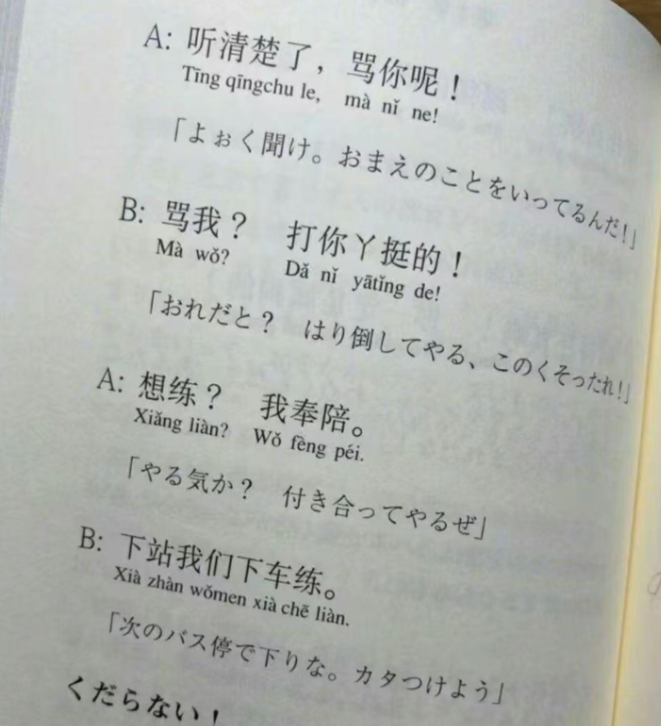 A: 听清楚了，骂你呢！
Tīng qīngchu le, mà nǐ ne!
「よぉく聞け。おまえのことをいってるんだ！」
B: 骂我？ 打你丫挺的！
Mà wǒ? Dǎ nǐ yātǐng de!
「おれだと？ はり倒してやる、このくそったれ！」
A: 想练？ 我奉陪。
Xiǎng liàn? Wǒ fèng péi.
「やる気か？ 付き合ってやるぜ」
B: 下站我们下车练。
Xià zhàn wǒmen xià chē liàn.
「次のバス停で下りな。カタつけよう」
くだらない！